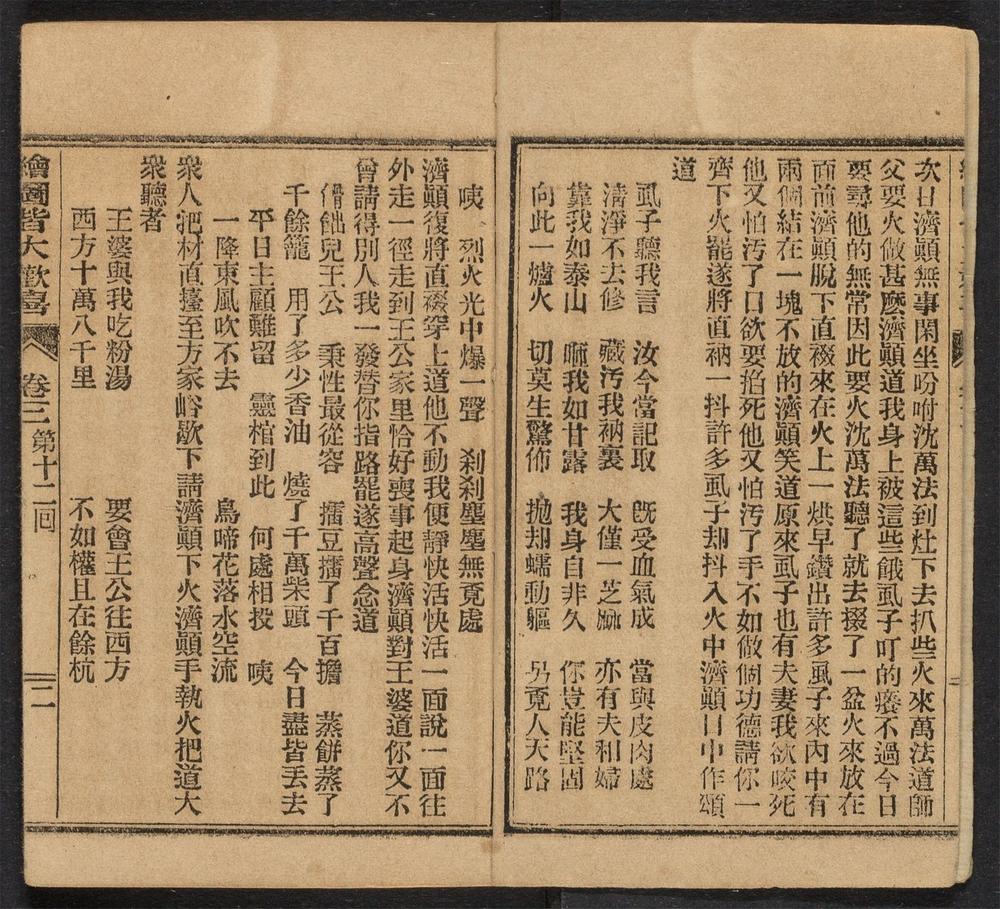 次日濟顚無事閑坐吩咐沈萬法到灶下去扒些火來萬法道師
父要火做甚麽濟顚道我身上被這些餓虱子叮的癢不過今日
要尋他的無常因此要火沈萬法聽了就去掇了一盆火來放在
面前濟顚脫下直裰來在火上一烘早鑽出許多虱子來內中有
兩個結在一塊不放的濟顚笑道原來虱子也有夫妻我欲咬死
他又怕汚了口欲要掐死他又怕汚了手不如做個功德請你一
齊下火罷遂將直衲一抖許多虱子却抖入火中濟顚口中作頌
道
虱子聽我言 汝今當記取 旣受血氣成 當與皮肉處
淸淨不去修 藏汚我衲裏 大僅一芝蔴 亦有夫和婦
靠我如泰山 咂我如甘露 我身自非久 你豈能堅固
向此一爐火 切莫生驚佈 拋却蠕動軀 另覓人天路
咦 烈火光中爆一聲 刹刹塵塵無覓處
濟顚復將直裰穿上道他不動我便靜快活快活一面說一面往
外走一徑走到王公家里恰好喪事起身濟顚對王婆道你又不
曾請得別人我一發替你指路罷遂高聲念道
餶飿兒王公 秉性最從容 擂豆擂了千百擔 蒸餅蒸了
千餘籠 用了多少香油 燒了千萬柴頭 今日盡皆丟去
平日主顧難留 靈棺到此 何處相投 咦
一降東風吹不去 鳥啼花落水空流
衆人把材直擡至方家峪歇下請濟顚下火濟顚手執火把道大
衆聽者
王婆與我吃粉湯 要會王公往西方
西方十萬八千里 不如權且在餘杭
繪圖皆大歡喜 卷三 第十二回 二